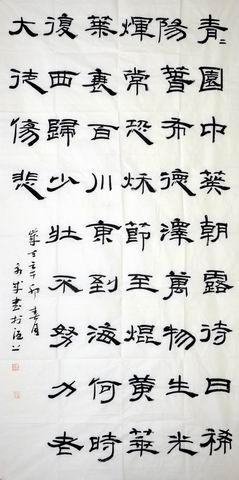 青〻園中葵朝露待日稀
陽春布德澤萬物生光
煇常恐秋節至焜黃華
葉衰百川東到海何時
復西歸少壯不努力老
大徒傷悲
卯春月
書於